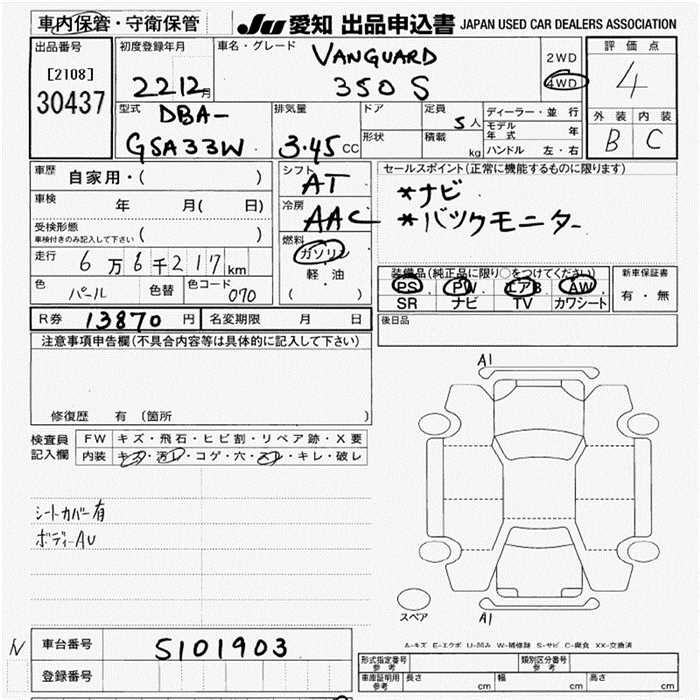 車内保管・守衛保管
JU 愛知 出品申込書 JAPAN USED CAR DEALERS ASSOCIATION
出品番号
[2108]
30437
初度登録年月
22 12月
車名・グレード
VANGUARD
350 S
2WD
4WD
評価点
4
外装 内装
B C
型式
DBA-
GSA33W
排気量
3.45 CC
ドア
形状
定員
5人
積載
kg
ディーラー・並行
モデル年式 年
ハンドル 左・右
車歴
自家用・( )
車検
年 月( 日)
受検形態
車検付きのみ記入して下さい ( )
走行
6万6千217km
色
パール
色替
色コード
070
シフト
AT
冷房
AAC
燃料
ガソリン
軽・油
( ・ )
セールスポイント(正常に機能するものに限ります)
*ナビ
*バックモニター
装備品(純正品に限り○をつけてください)
PS PW エアB AW
SR ナビ TV カワシート
新車保証書
有・無
R券 13870 円
名変期限 月 日
後日品
注意事項申告欄(不具合内容等は具体的に記入して下さい)
修復歴 有 (箇所 )
検査員
記入欄
FW キズ・飛石・ヒビ割・リペア跡・X要
内装 キズ・汚レ・コゲ・穴・スレ・キレ・破レ
シートカバー有
ボディーAU
A1
A1
スペア
A-キズ E-エクボ U-凹み W-補修跡 S-サビ C-腐食 XX-交換済
N
車台番号
5101903
登録番号
形式指定番号
参考
類別区分番号
参考
車庫証明用
参考
長さ cm 幅 cm 高さ cm